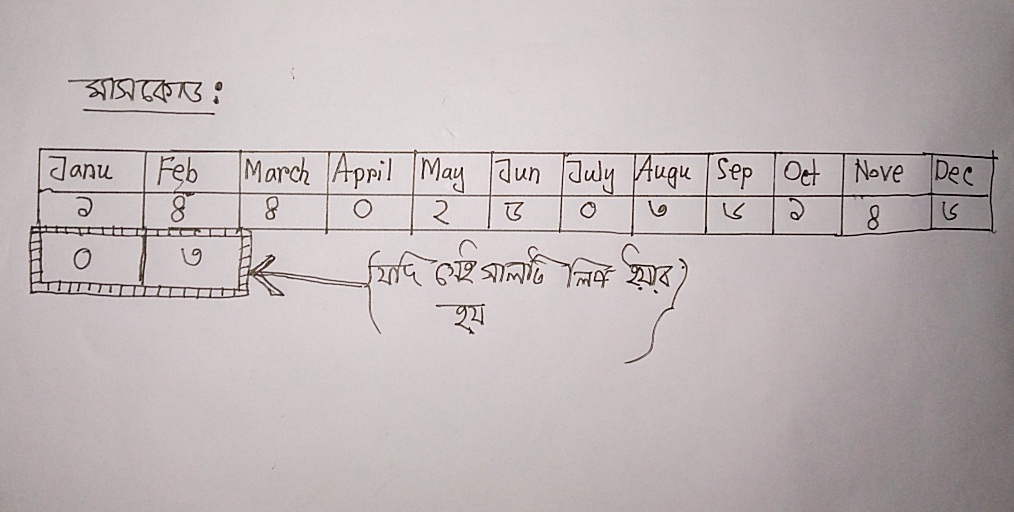 মাসকোড :
Janu Feb March April May Jun July Augu Sep Oct Nove Dec
১ ৪ ৪ ০ ২ ৫ ০ ৩ ৬ ১ ৪ ৬
০ ৩
(যদি সেই সালটি লিপ ইয়ার
হয়)